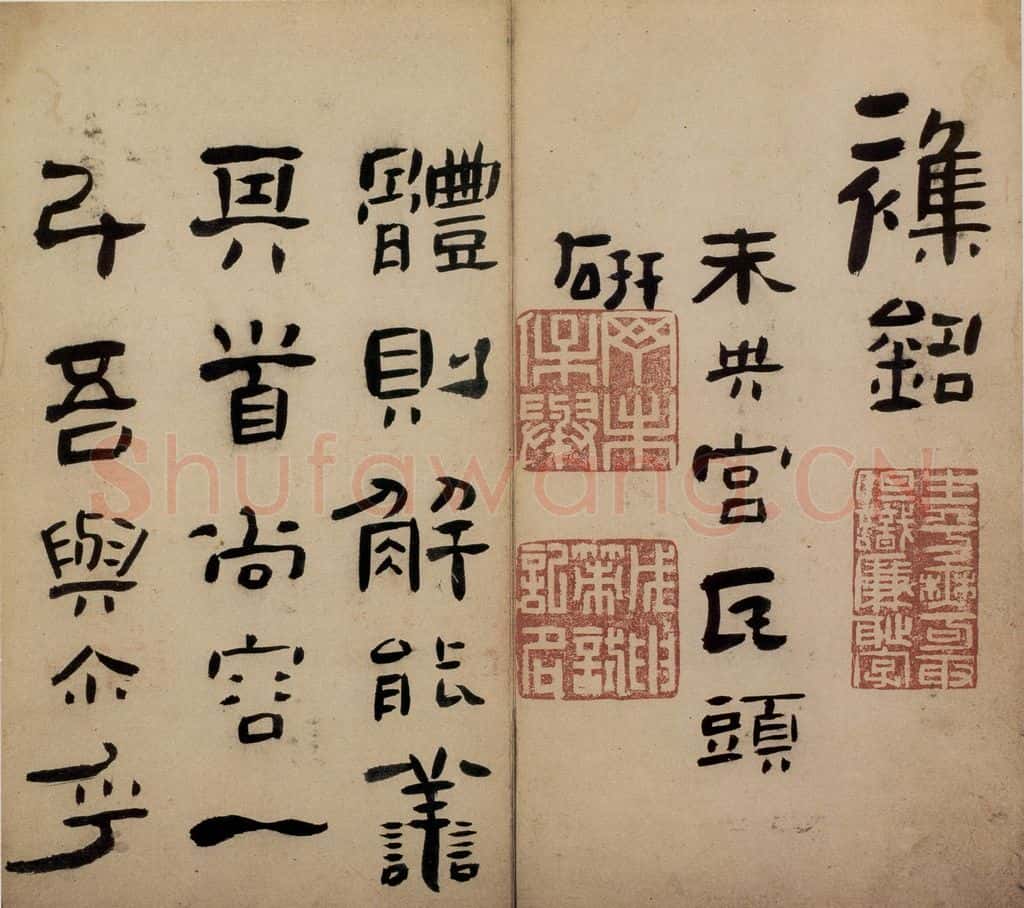 襍銘
未央宮瓦頭
研
體則解能譱
其首尚容一
斗吾與尒乎
Shufawang.CN